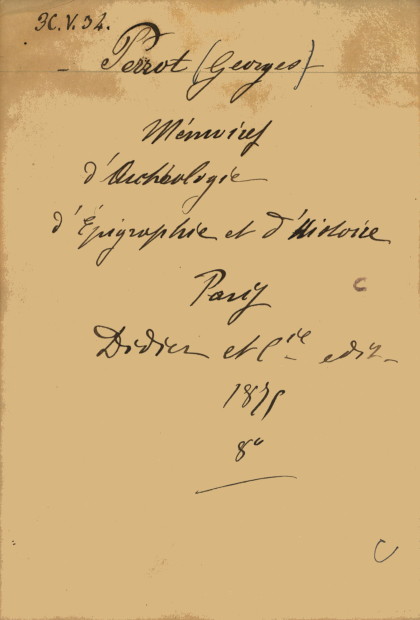 3C.V.34.
Perrot (Georges)
Mémoires
d'Archéologie
d'Épigraphie et d'Histoire
Paris
C
Didier et Cie edit.
1875
8°
C